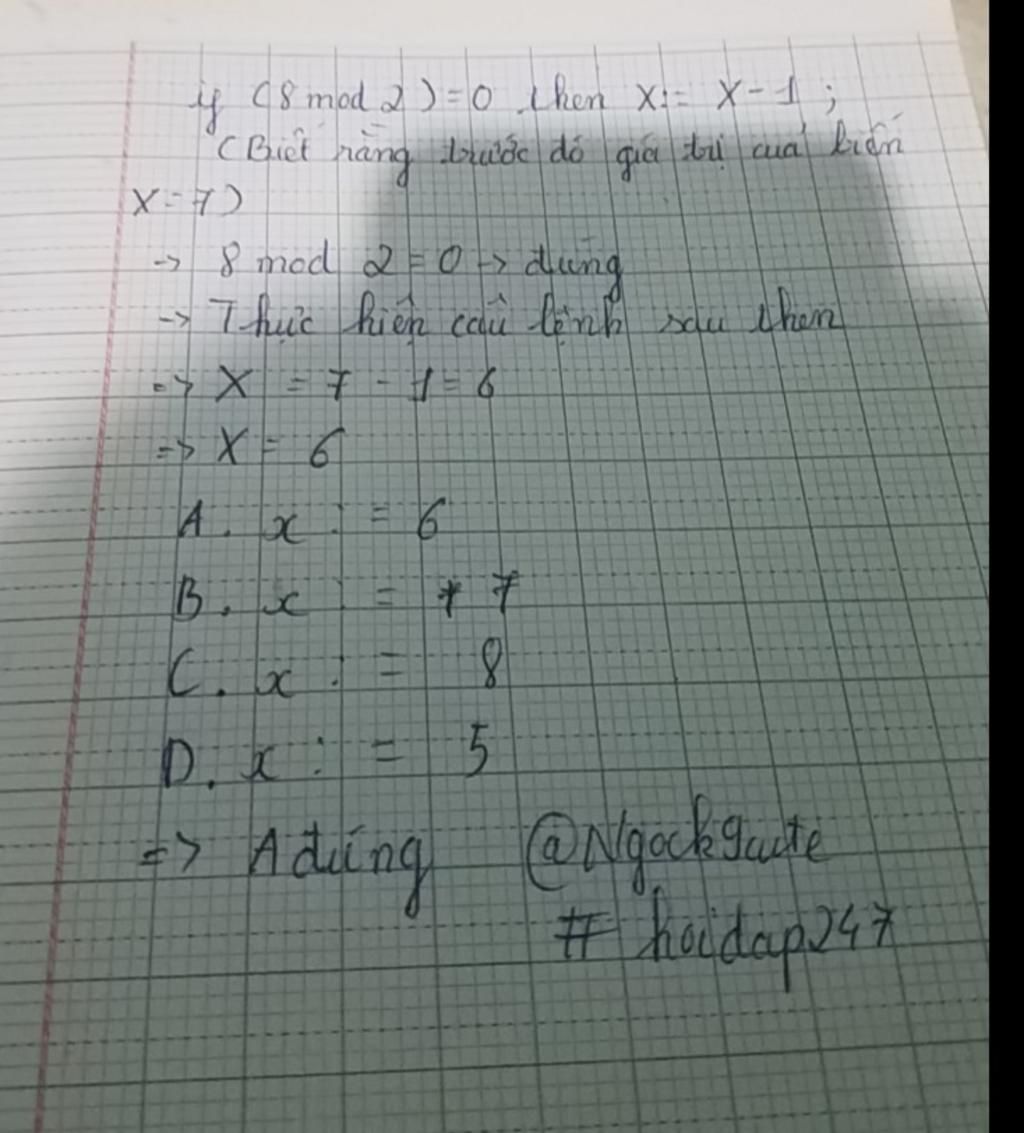 if (8 mod 2) = 0 then X:= X - 1 ;
(Biết rằng trước đó giá trị cuả biến
X = 7)
-> 8 mod 2 = 0 -> đúng
-> Thực hiện câu lệnh sau then
=> X = 7 - 1 = 6
=> X = 6
A. x : = 6
B. x : = 7
C. x : = 8
D. x : = 5
=> A đúng @Ngock9aute
# hoidap247